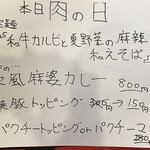 本日肉の日
麺
和牛カルビと夏野菜の麻辣
和えそば
の…
風麻婆カレー 800円
豚トッピング 300円→150円
パクチートッピングorパクチーマ
280